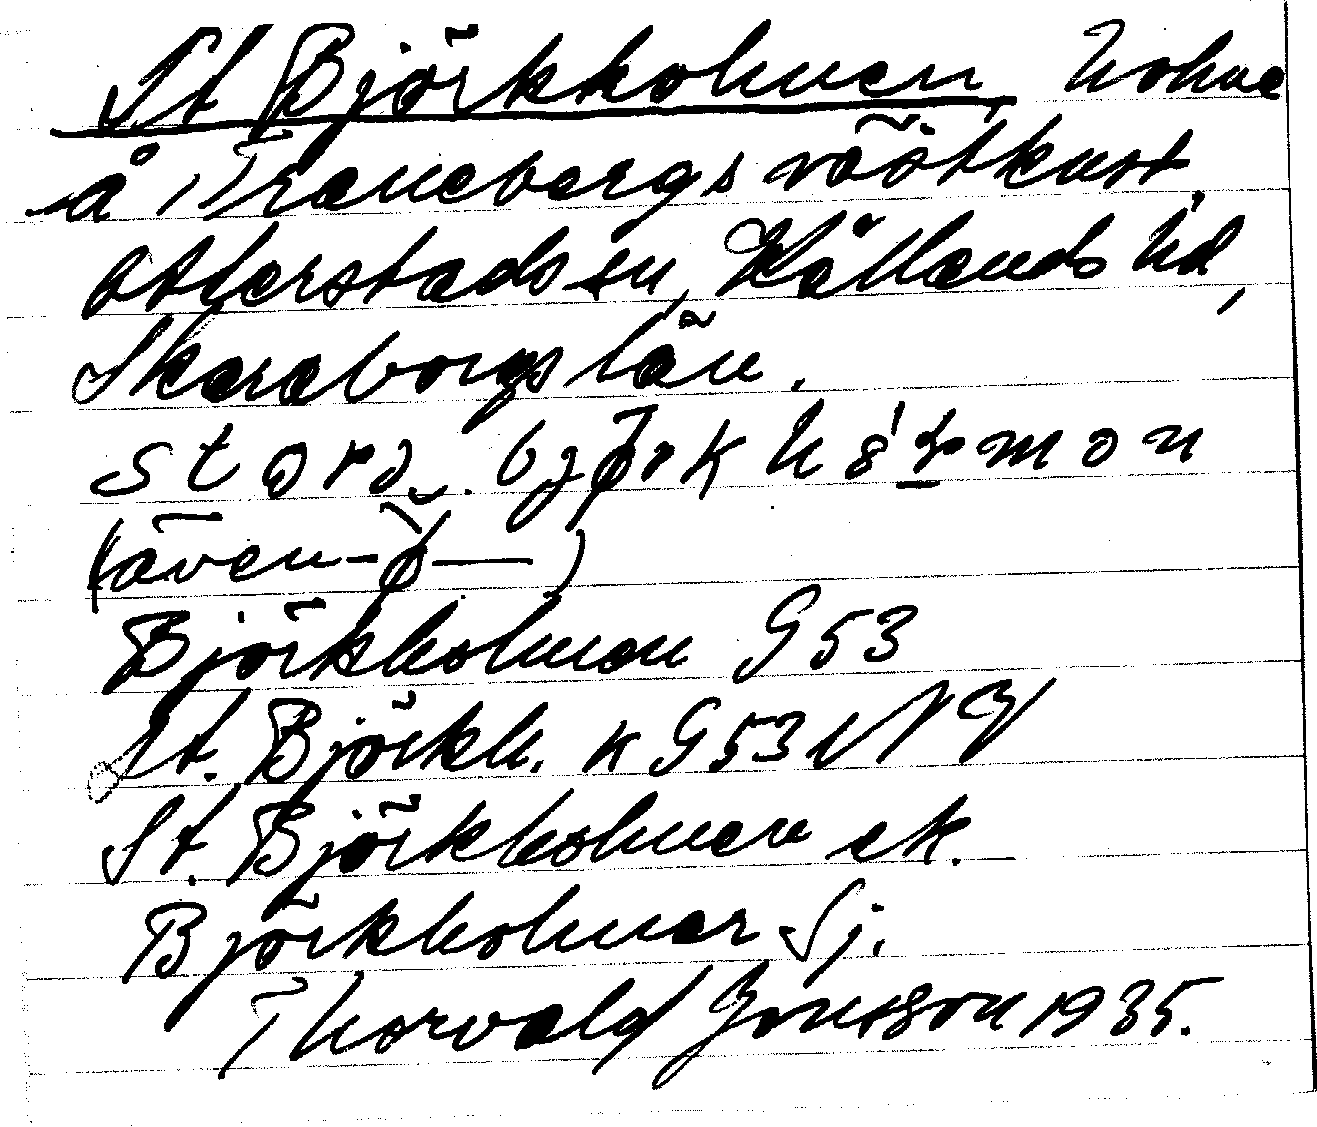 St Björkholmen, holme
å Tranebergs västkust,
Otterstads sn, Kållands hd,
Skaraborgs län.
(även - ǿ — )
Björkholmen G 53
St. Björkh. K G 53 NV
St. Björkholmen ek.
Björkholmar Sj.
Thorvald Jonsson 1935.